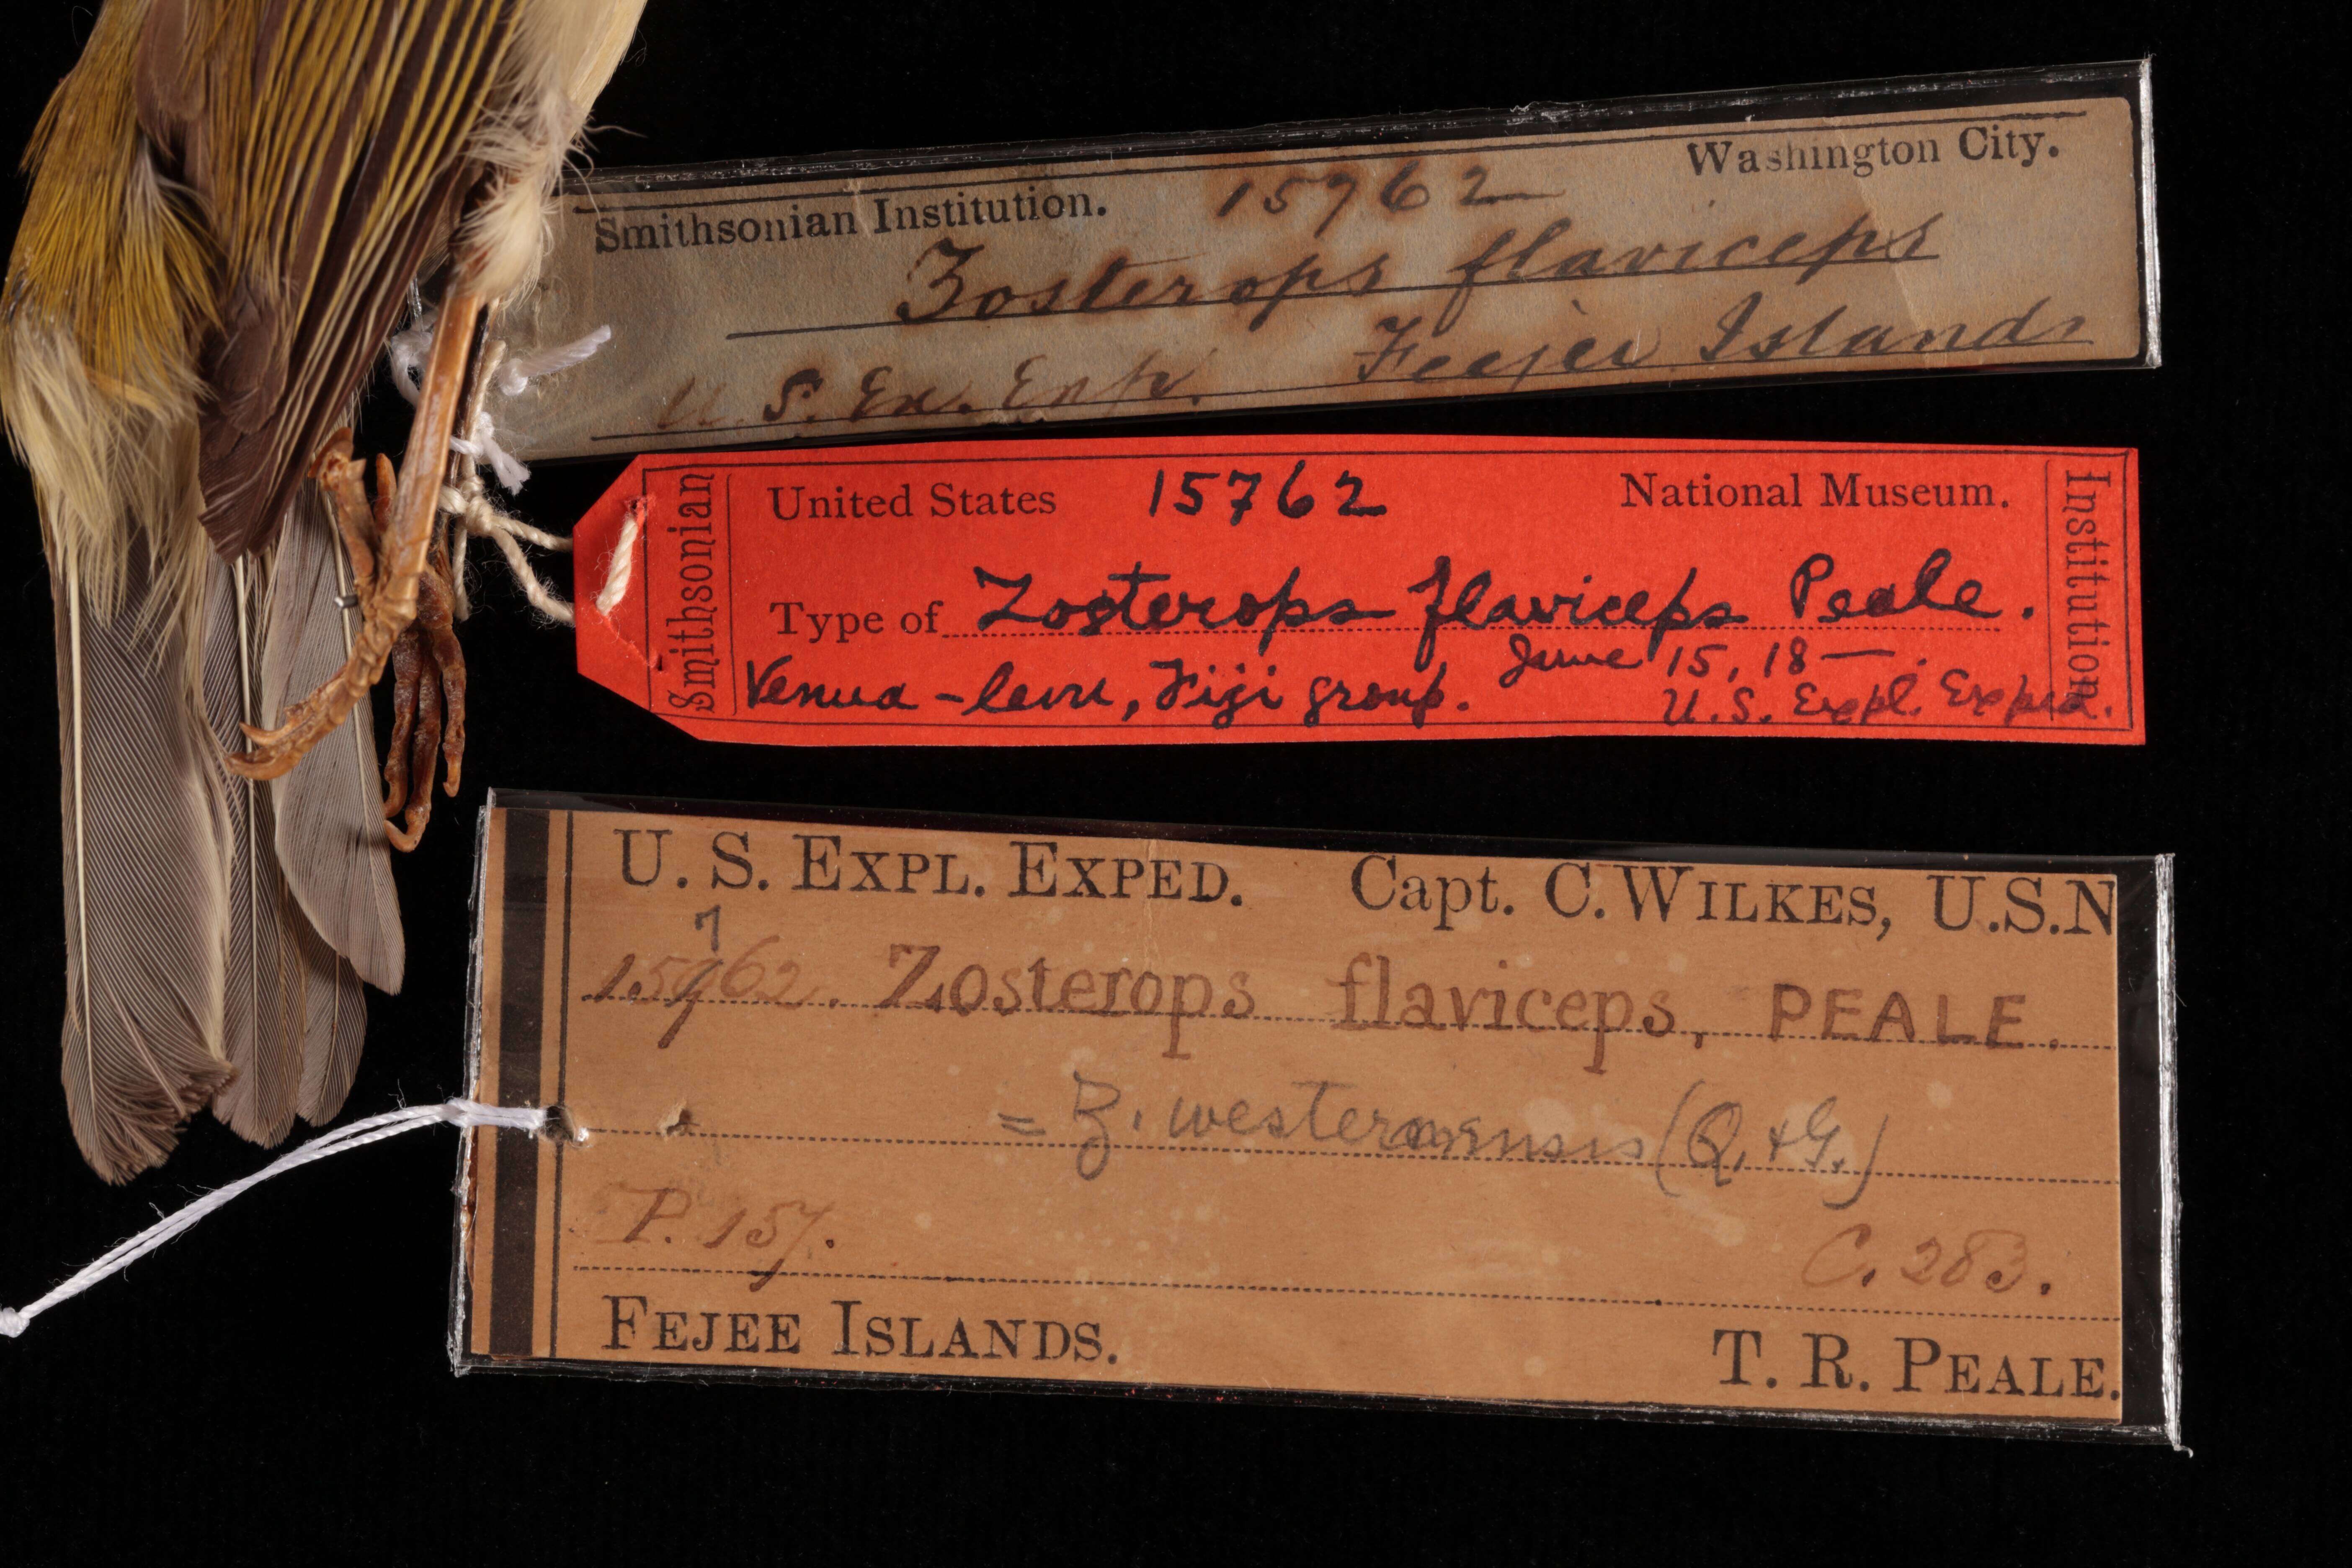 Smithsonian Institution. 15762 Washington City.
Zosterops flaviceps
U. S. Ex. Exp. Feejee Islands
Smithsonian
United States 15762 National Museum.
Institution.
Type of Zosterops flaviceps Peale.
June 15, 18—.
Venua-levu, Fiji group.
U.S. Expl. Exped.
U. S. EXPL. EXPED. Capt. C. WILKES, U.S.N
7
15962. Zosterops flaviceps, PEALE.
= Z. westernensis (Q. & G.)
P. 157. C. 283.
FEJEE ISLANDS. T. R. PEALE.